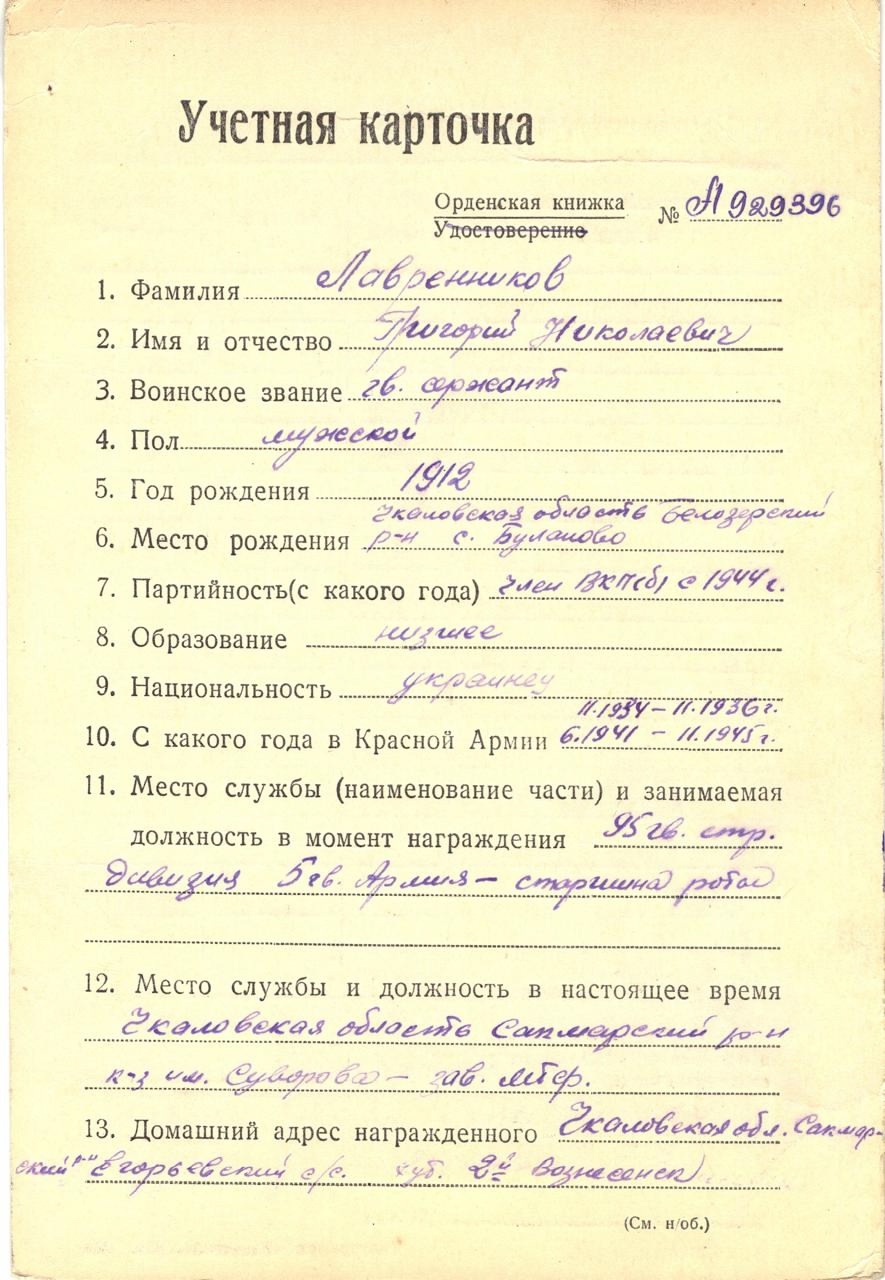 Учетная карточка
Орденская книжка № А 929396
Удостоверение
1. Фамилия Лавренников
2. Имя и отчество Григорий Николаевич
3. Воинское звание гв. сержант
4. Пол мужской
5. Год рождения 1912
Чкаловская область Белозерский
6. Место рождения р-н с. Буланово
7. Партийность(с какого года) член ВКП(б) с 1944 г.
8. Образование низшее
9. Национальность украинец
11.1934 – 11.1936 г.
10. С какого года в Красной Армии 6.1941 – 11.1945 г.
11. Место службы (наименование части) и занимаемая
должность в момент награждения 95 гв. стр.
дивизия 5 гв. Армия – старшина роты
12. Место службы и должность в настоящее время
Чкаловская область Сакмарский р-н
к-з им. Суворова – зав. МТФ.
13. Домашний адрес награжденного Чкаловская обл. Сакмар-
ский р-н Егорьевский с/с. 2й Вознесенск
(См. н/об.)